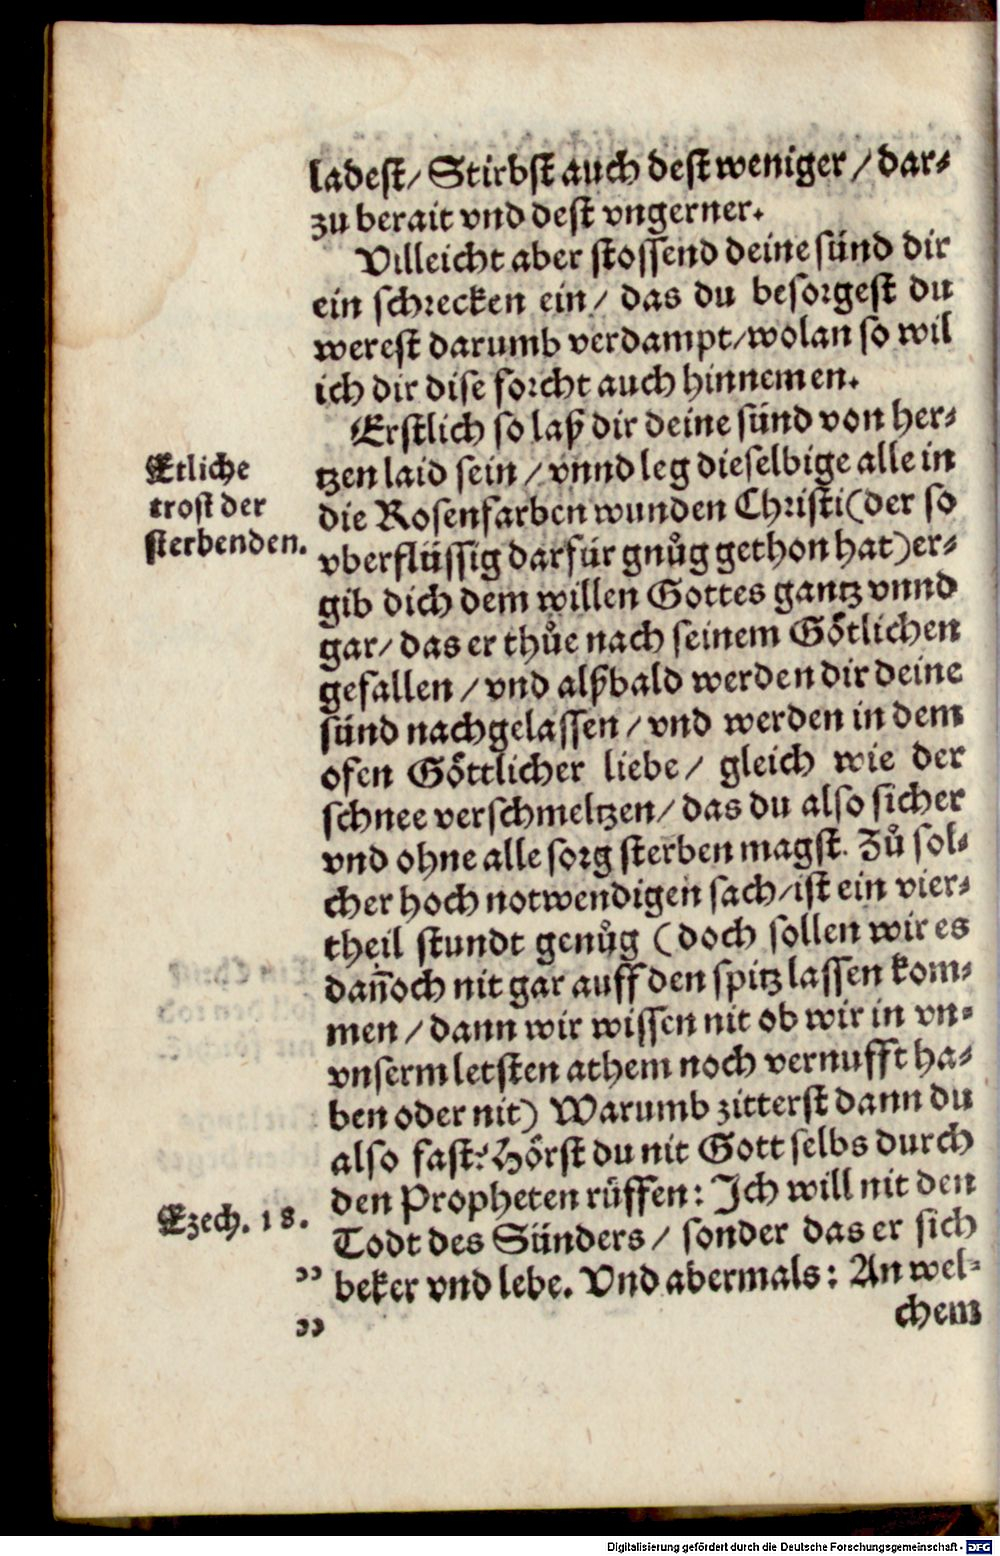 ladest/ Stirbst auch dest weniger / dar⸗
zu berait vnd dest vngerner.
Villeicht aber stossend deine sünd dir
ein schrecken ein/ das du besorgest du
werest darumb verdampt/wolan so wil
ich dir dise forcht auch hinnemen.
Erstlich so laß dir deine sünd von her⸗
Etliche
trost der
sterbenden.
tzen laid sein / vnnd leg dieselbige alle in
die Rosenfarben wunden Christi(der so
vberflüssig darfür gnůg gethon hat)er⸗
gib dich dem willen Gottes gantz vnnd
gar/ das er thůe nach seinem Götlichen
gefallen / vnd alßbald werden dir deine
sünd nachgelassen / vnd werden in dem
ofen Göttlicher liebe/ gleich wie der
schnee verschmeltzen/ das du also sicher
vnd ohne alle sorg sterben magst. Zů sol⸗
cher hoch notwendigen sach/ist ein vier⸗
theil stundt genůg (doch sollen wir es
dañoch nit gar auff den spitz lassen kom⸗
men / dann wir wissen nit ob wir in vn⸗
vnserm letsten athem noch vernufft ha⸗
ben oder nit) Warumb zitterst dann du
also fast? Hörst du nit Gott selbs durch
den Propheten rüffen: Ich will nit den
Ezech. 18.
Todt des Sünders / sonder das er sich
beker vnd lebe. Vnd abermals: An wel⸗
„
„
chem
Digitalisierung gefördert durch die Deutsche Forschungsgemeinschaft - DFG